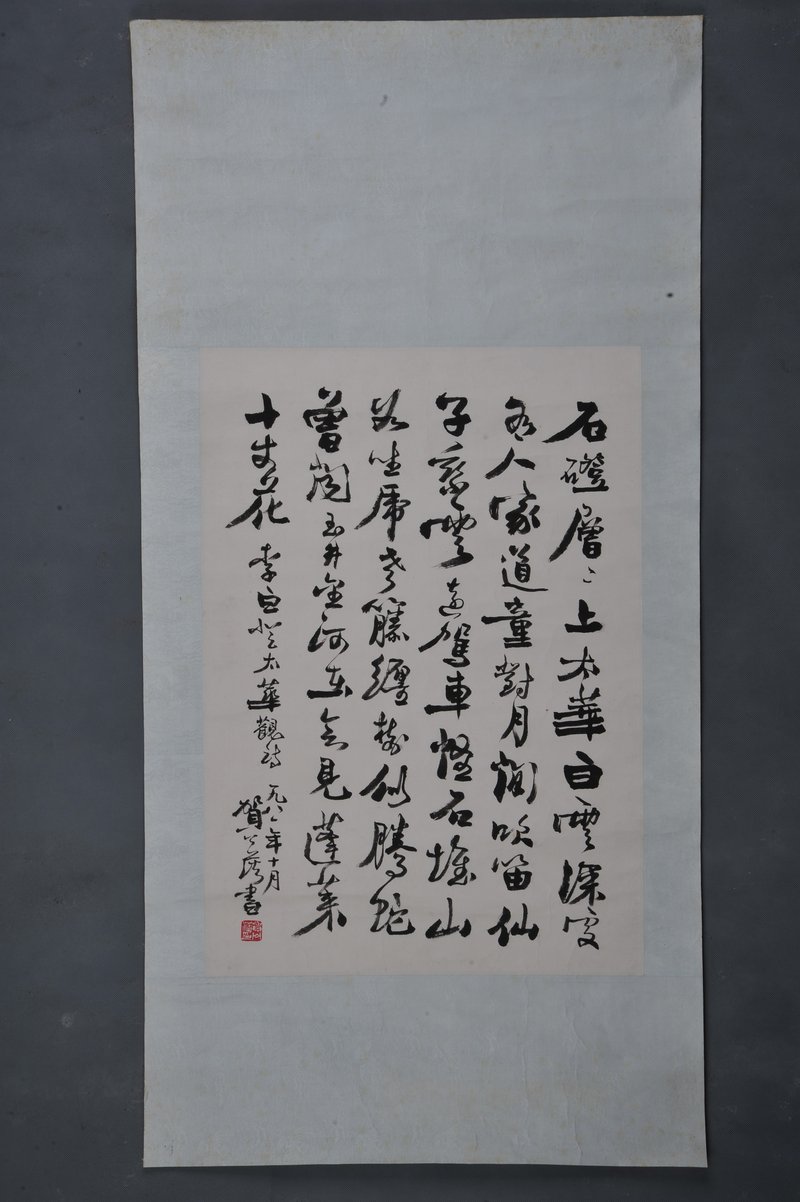 石磴層〻上太華白雲深處
有人家道童對月閒吹笛仙
子乘雲遠駕車怪石堆山
如坐虎老籐纏樹似騰蛇
曾聞玉井金河在會見蓬萊
十丈花 李白登太華觀詩
一九八年十月
賀書